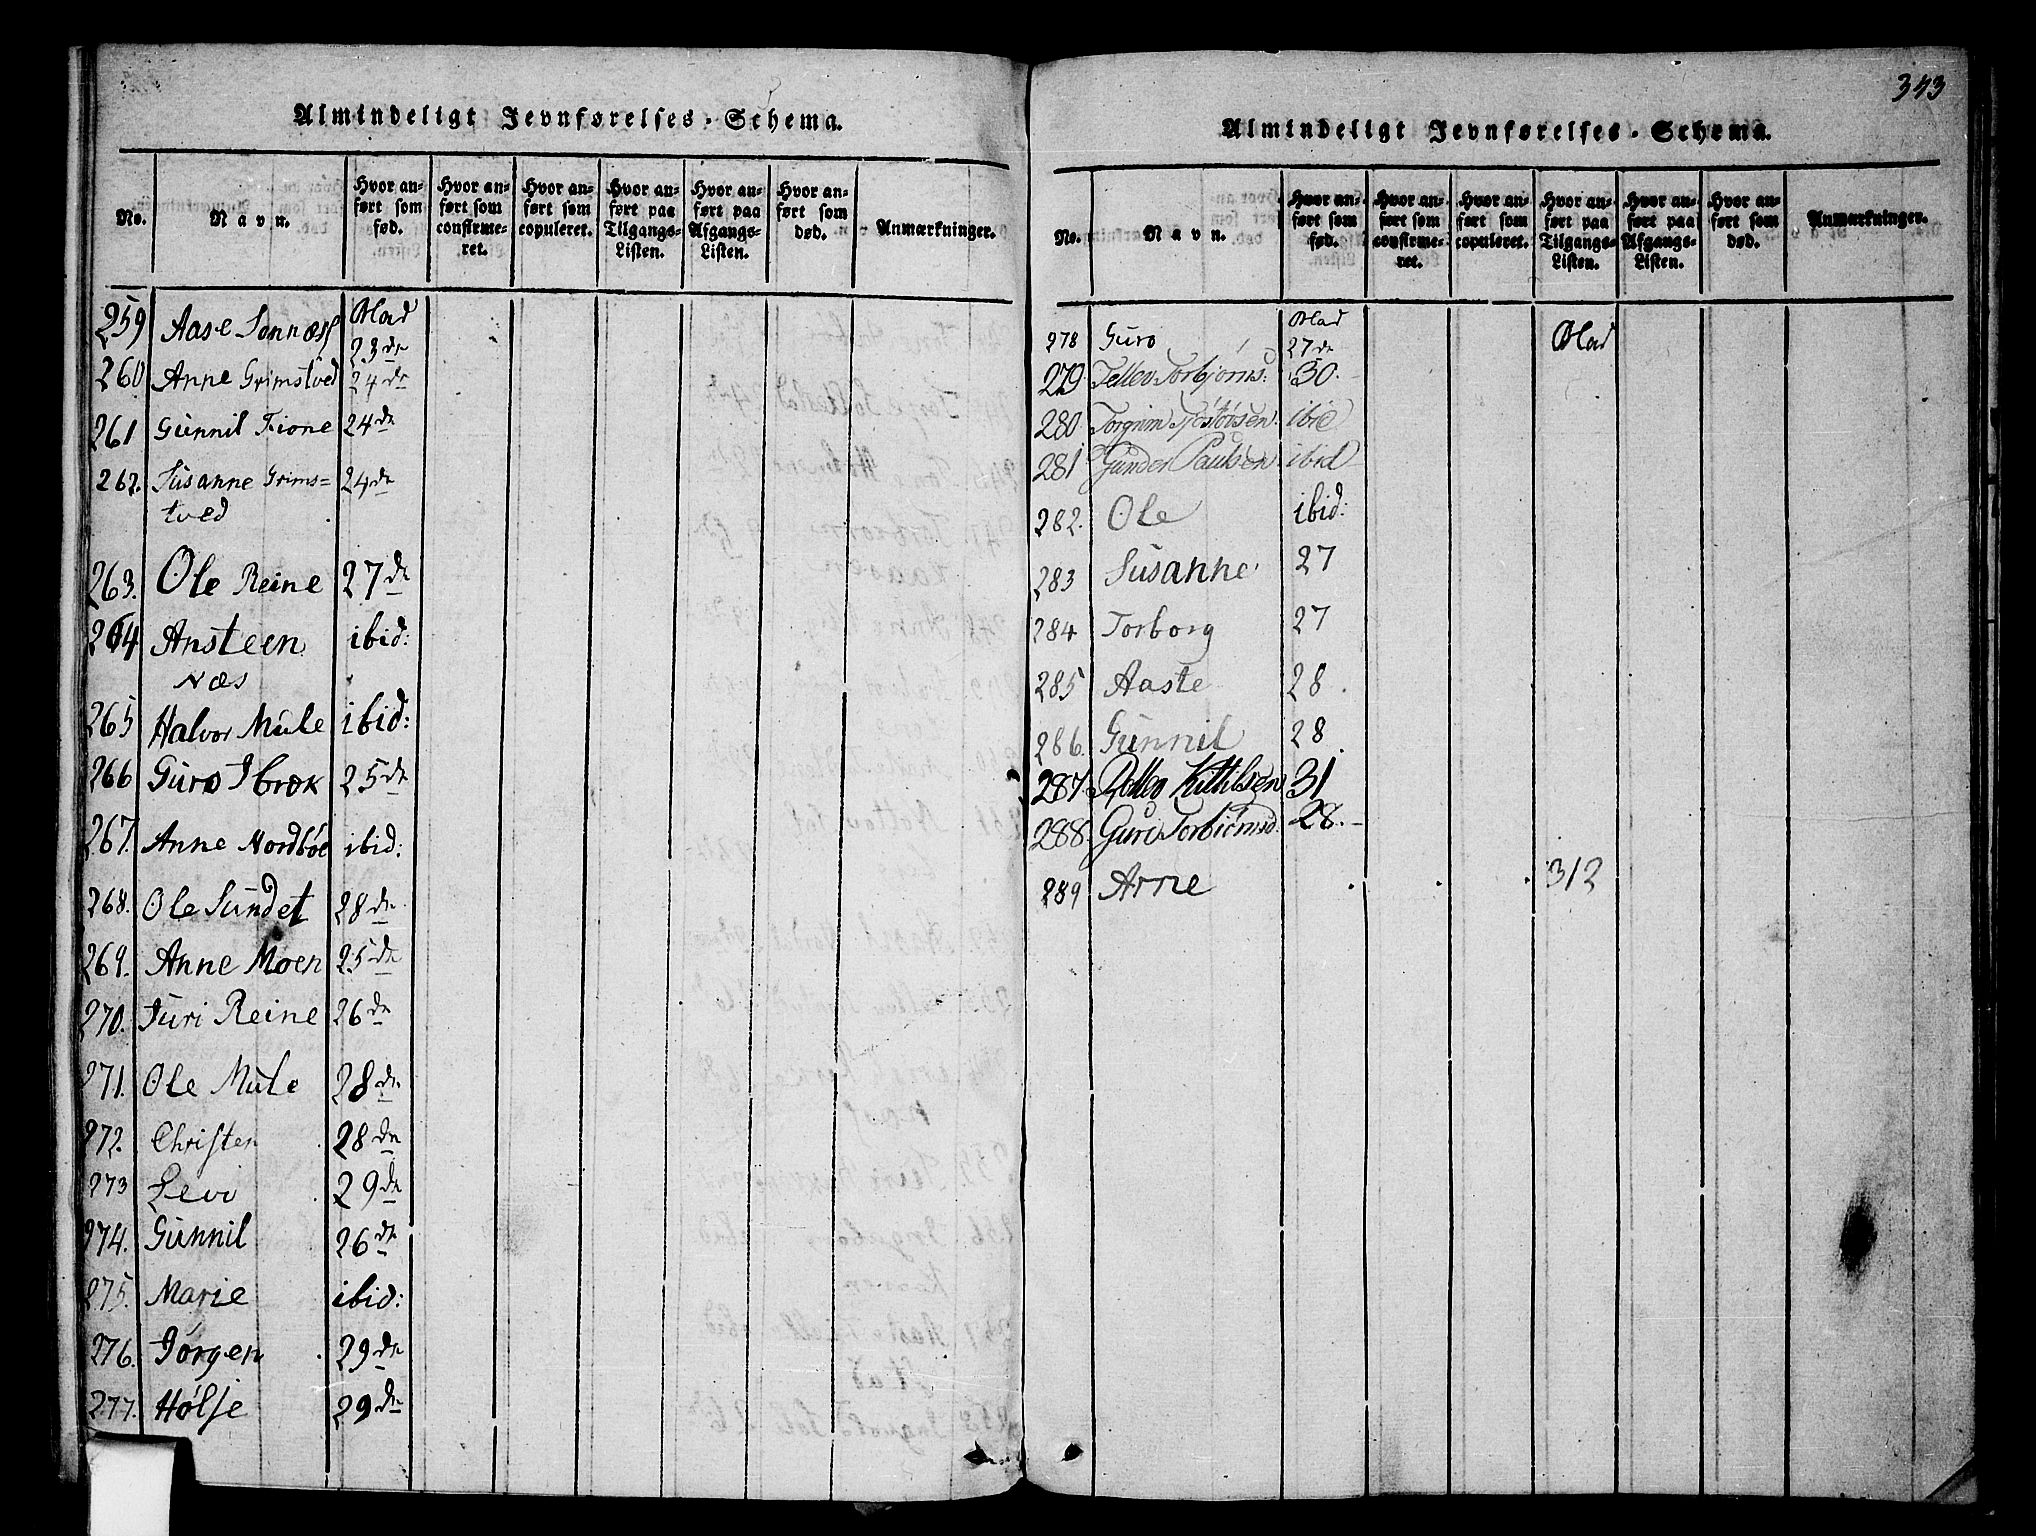 Almindeligt Jevnførelses-Schema.
No.
Navn.
Hvor anført som fød.
Hvor anført som confirmeret.
Hvor anført som copuleret.
Hvor anført paa Tilgangs-Listen.
Hvor anført paa Afgangs-Listen.
Hvor anført som død.
Anmærkninger.
Blad
259 Aase Sonnæss 23de
260 Anne Grimstved 24de
261 Gunnil Fione 24de
262. Susanne Grims= 24de
tved
263. Ole Reine 27de
264 Ansteen ibid:
Næs
265 Halvor Mule ibid:
266 Guro Ibrok 25de
267. Anne Nordbøe ibid:
268. Ole Sundet 28de
269. Anne Moen 25de
270. Turi Reine 26de
271. Ole Mule 28de
272. Christen 28de
273 Levi 29de
274. Gunnil 26de
275. Marie ibid:
276. Jørgen 29de
277. Hølje 29de
343
Almindeligt Jevnførelses-Schema.
No.
Navn.
Hvor anført som fød.
Hvor anført som confirmeret.
Hvor anført som copuleret.
Hvor anført paa Tilgangs-Listen.
Hvor anført paa Afgangs-Listen.
Hvor anført som død.
Anmærkninger.
Blad
278 Guro 27de Blad
279 Tellev Torbjørns: 30.
280. Torgrim Tjøstølsen ibid
281 Gunder Paulsen ibid
282. Ole ibid:
283 Susanne 27
284 Torborg 27
285 Aaste 28.
286. Gunnil 28
287. Tellev Kittilsen 31
288. Guri Torbiørnsd. 28.
289 Arne 312